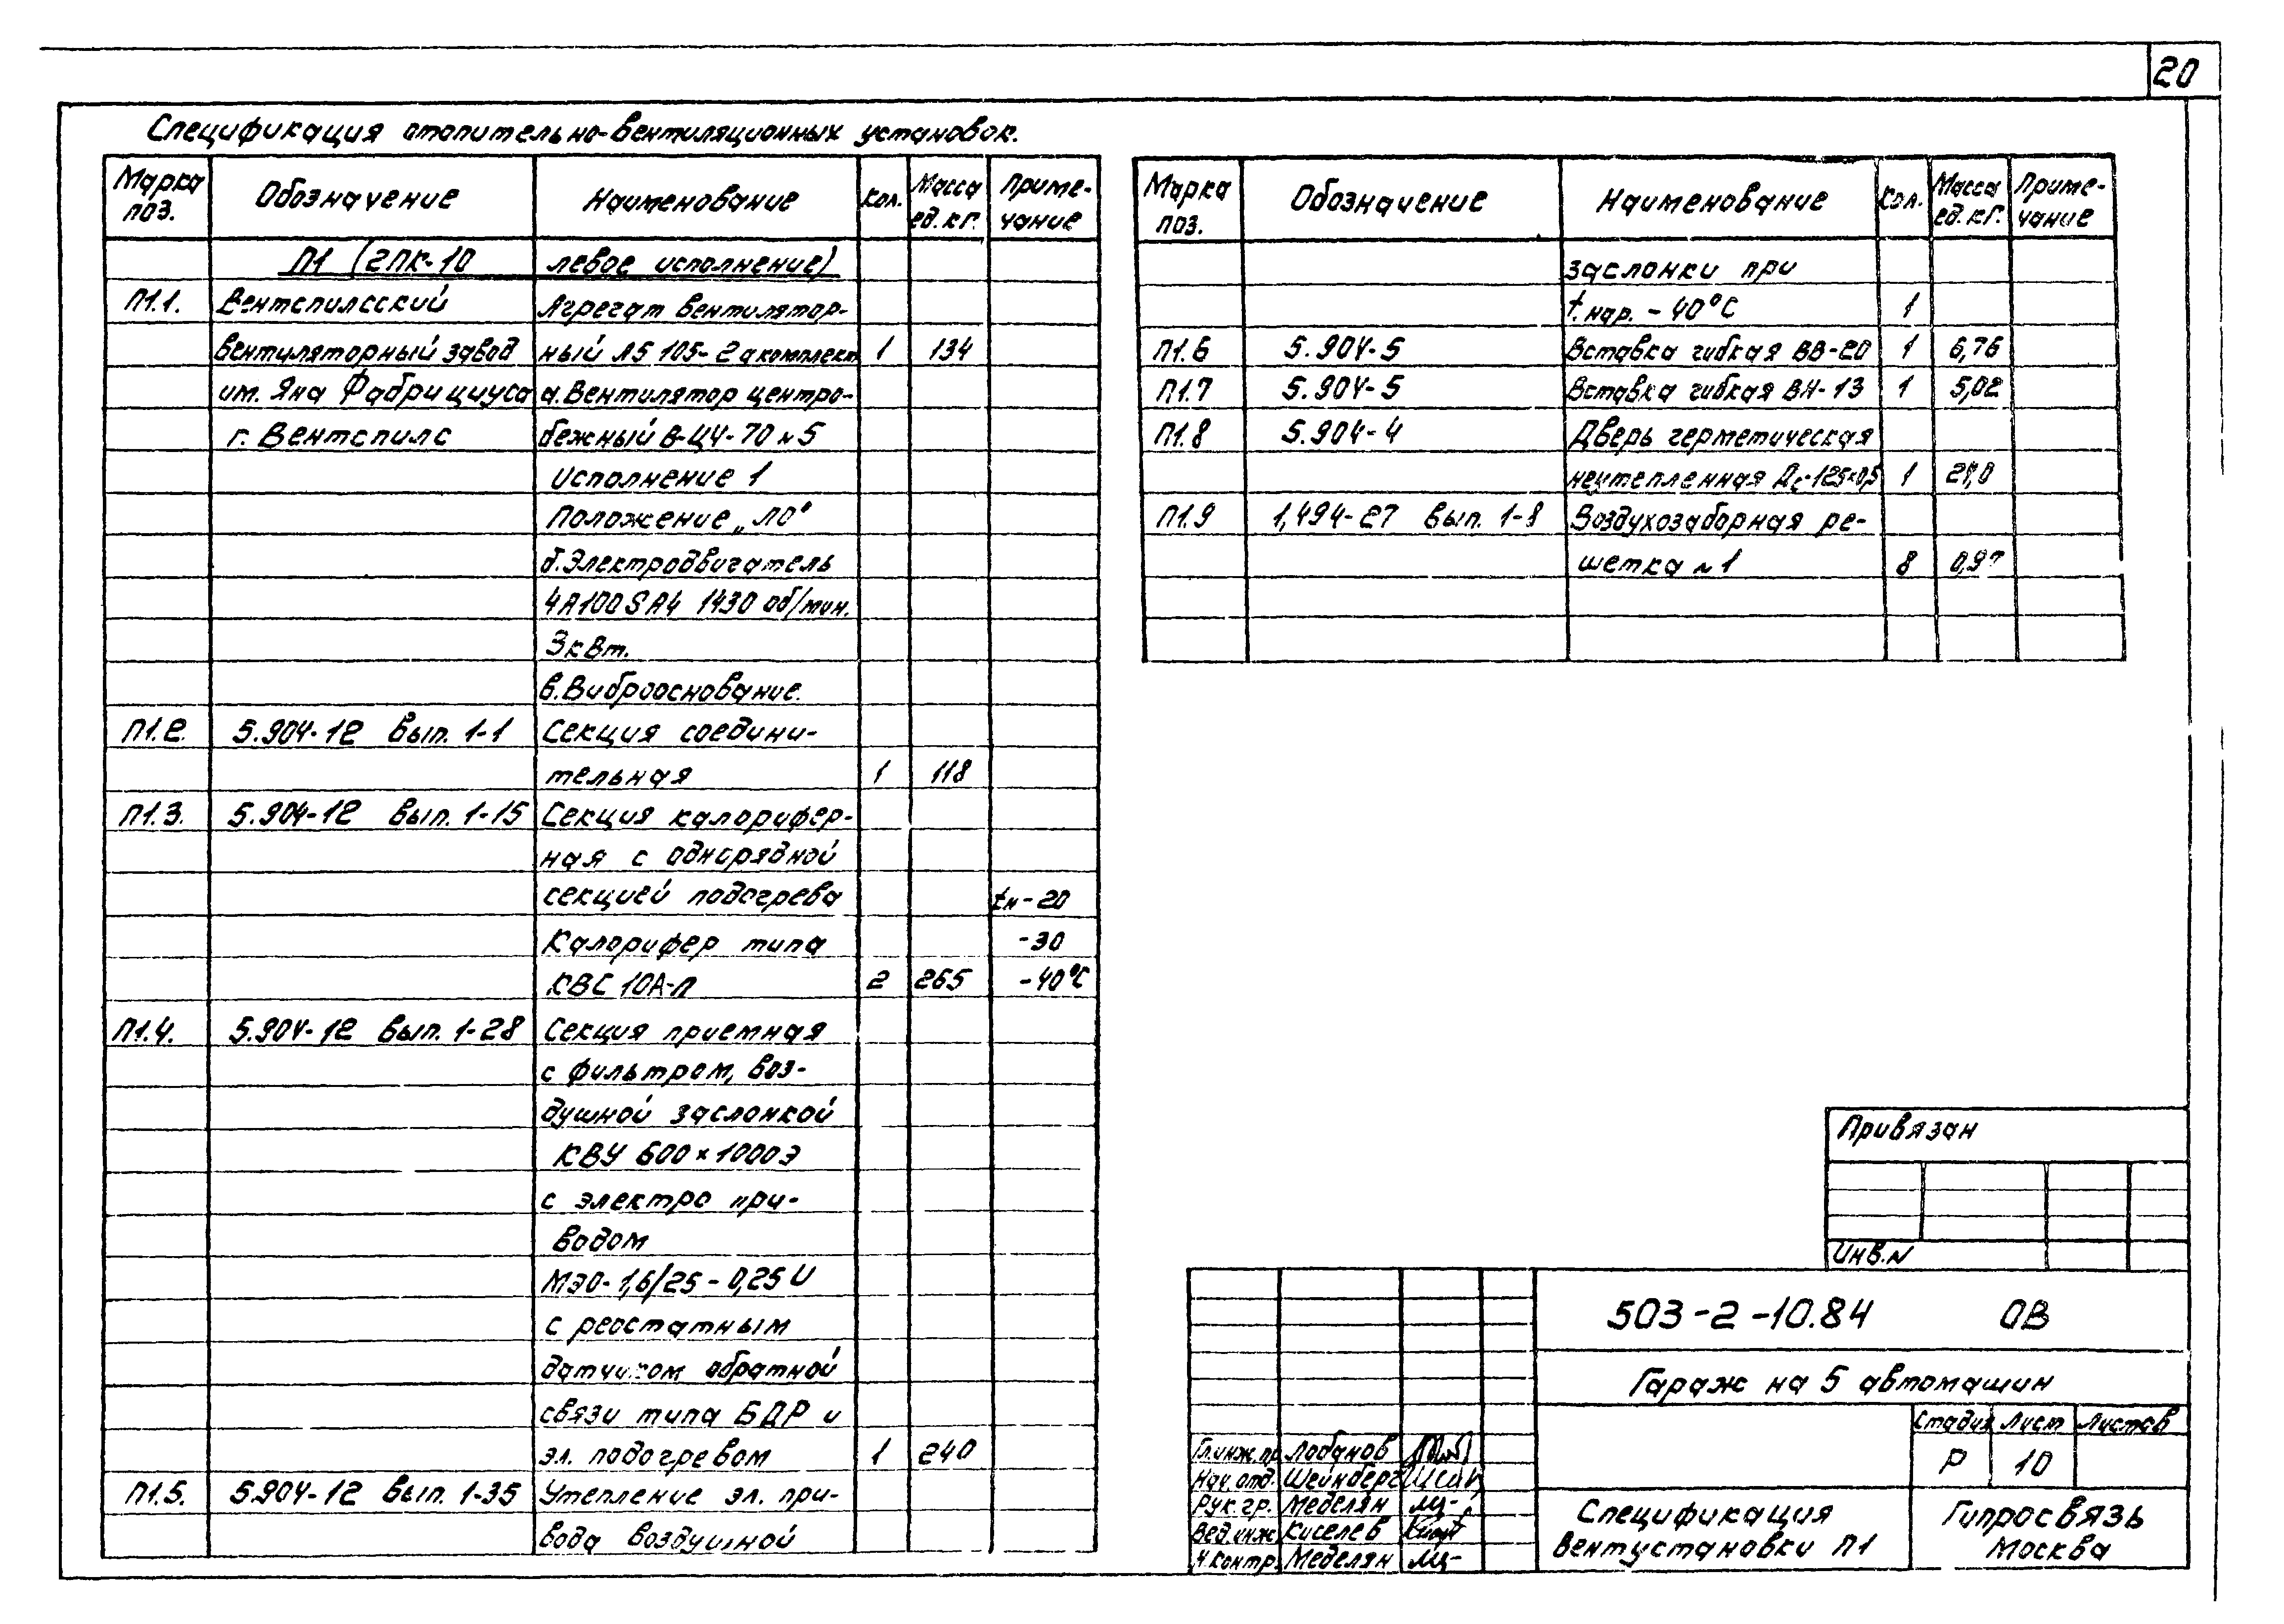 20
Спецификация отопительно-вентиляционных установок.
Марка поз. Обозначение Наименование Кол. Масса ед. кг. Примечание
П1 (2ПК-10 левое исполнение)
П1.1. Вентспилсский Агрегат вентилятор-
вентиляторный завод ный А5 105-2а комплект 1 134
им. Яна Фабрициуса а. Вентилятор центро-
г. Вентспилс бежный В-Ц4-70 №5
Исполнение 1
Положение „Л0°
б. Электродвигатель
4А100SА4 1430 об/мин.
3 кВт.
в. Виброоснование.
П1.2. 5.904-12 Вып. 1-1 Секция соедини-
тельная 1 118
П1.3. 5.904-12 Вып. 1-15 Секция калорифер-
ная с однорядной
секцией подогрева tн-20
Калорифер типа -30
КВС 10А-П 2 265 -40°С
П1.4. 5.904-12 Вып. 1-28 Секция приемная
с фильтром, воз-
душной заслонкой
КВУ 600×1000Э
с электро при-
водом
МЭО-1,6/25-0,25 U
с реостатным
датчиком обратной
связи типа БДР и
эл. подогревом 1 240
П1.5. 5.904-12 Вып. 1-35 Утепление эл. при-
вода воздушной
Марка поз. Обозначение Наименование Кол. Масса ед. кг. Примечание
заслонки при
t.нар. -40°С 1
П1.6 5.904-5 Вставка гибкая ВВ-20 1 6,76
П1.7 5.904-5 Вставка гибкая ВН-13 1 5,02
П1.8 5.904-4 Дверь герметическая
неутепленная Дс-125×0,5 1
П1.9 1,494-27 Вып. 1-8 Воздухозаборная ре-
шетка №1 8
Привязан
Инв.N
503-2-10.84 ОВ
Гараж на 5 автомашин
Стадия Лист Листов
Р 10
Гл.инж.пр Лобанов
Нач. отд. Шейнберг
Рук. гр. Меделян
Вед.инж Киселев
Н контр. Меделян
Спецификация
Вентустановки П1
Гипросвязь
Москва